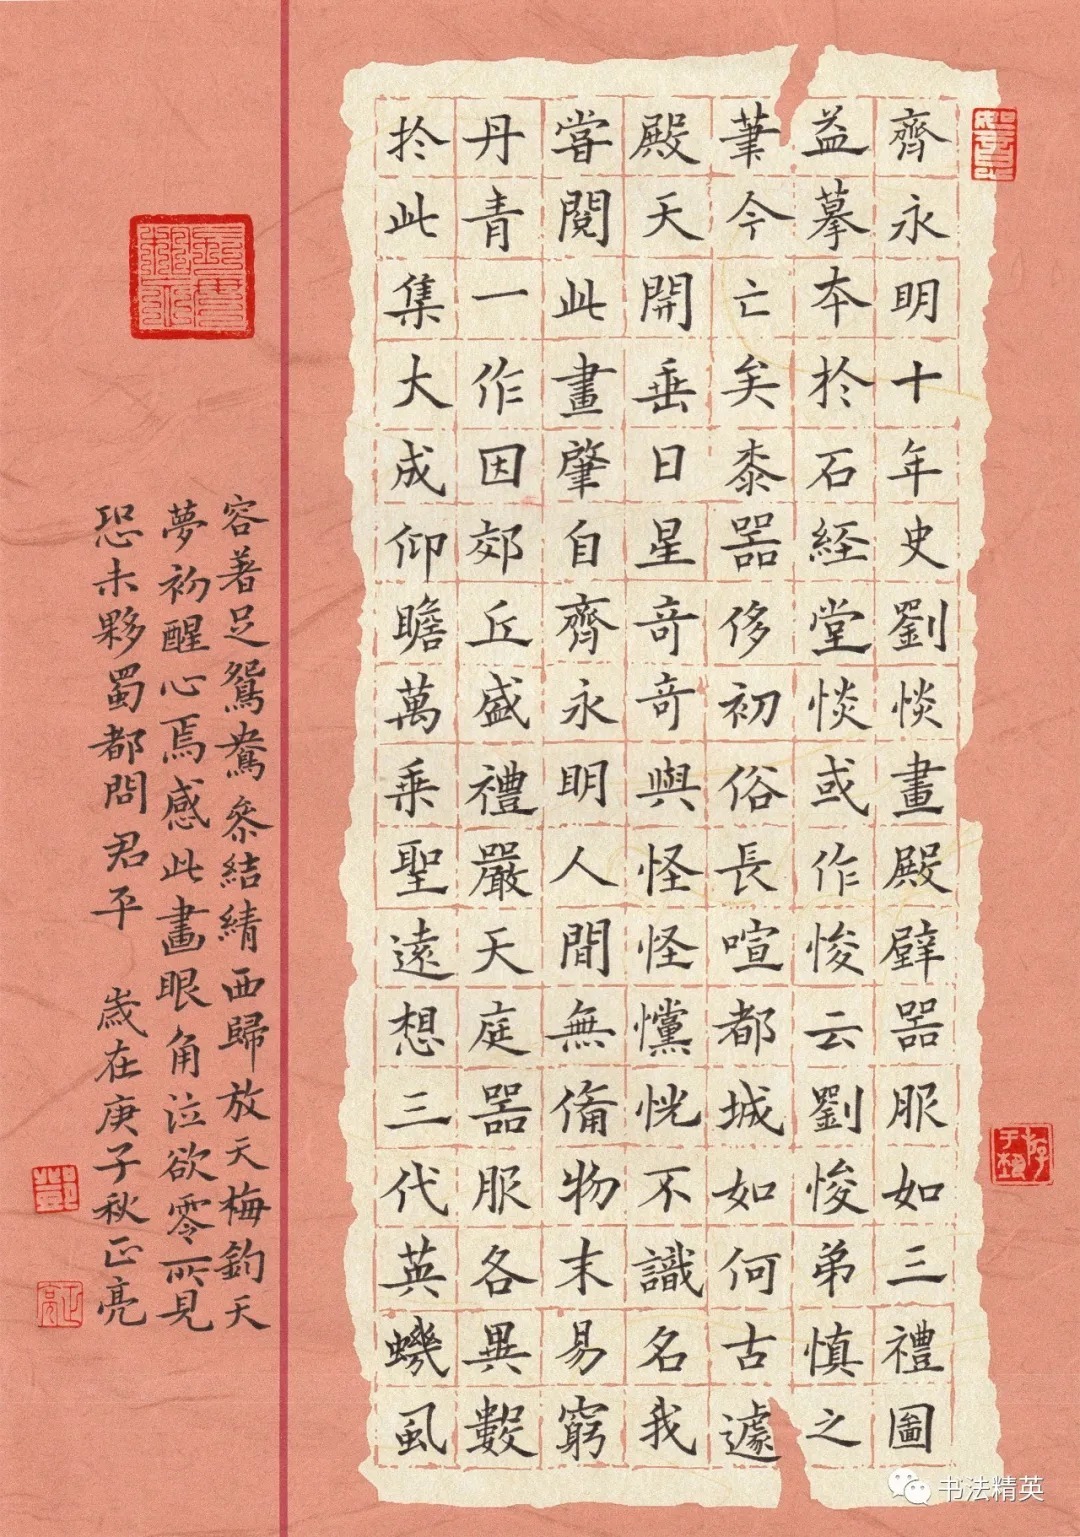 齊永明十年史劉惔畫殿壁器服如三禮圖
益摹本於石經堂惔或作悛云劉悛弟慎之
筆今亡矣黍器侈初俗長喧都城如何古遽
殿天開垂日星奇奇與怪怪戃恍不識名我
嘗閱此畫肇自齊永明人間無俻物末易窮
丹青一作因郊丘盛禮嚴天庭器服各異數
扵此集大成仰瞻萬乗聖遠想三代英蟣虱
容著足鴛鴦叅結綪西歸放天梅鈞天
夢初醒心焉感此畫眼角泣欲零所見
恐未夥蜀都問君平 歲在庚子秋正亮
书法精英